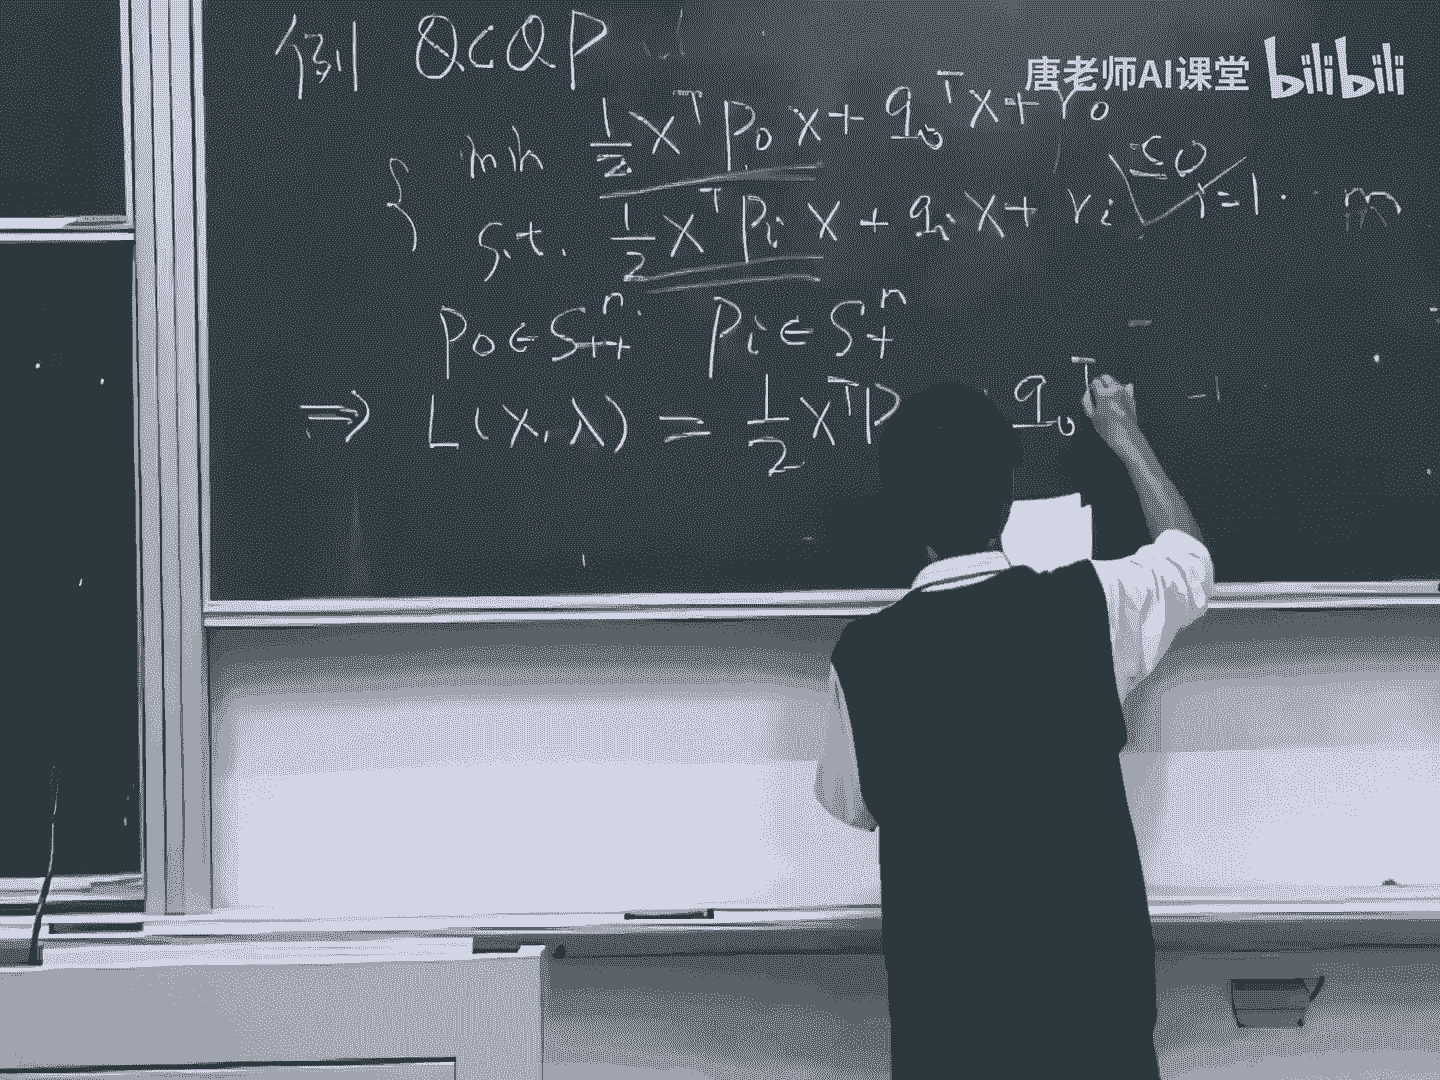 例 QCQP
唐老师AI课堂 bilibili
min ½ xᵀ P₀ x + q₀ᵀ x + r₀
s.t. ½ xᵀ Pᵢ x + qᵢ x + rᵢ ≤0 i=1. . m
P₀ ∈ Sⁿ₊₊ Pᵢ ∈ Sⁿ₊
⇒ L(x, λ) = ½ xᵀ P q₀ᵀ